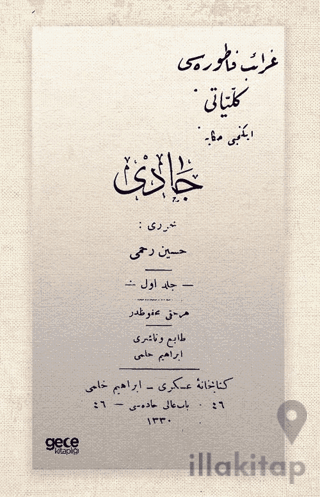 غرائب فاطوره‌سی
كلیاتی
ایكنجی حكایه
جادی
محرری :
حسین رحمی
— جلد اول —
هر حقی محفوظدر
طابع و ناشری
ابراهیم حلمی
كتابخانهٔ عسكری – ابراهیم حلمی
٤٦ باب عالی جاده‌سی — ٤٦
١٣٣٠
gece
kitaplığı
illakitap